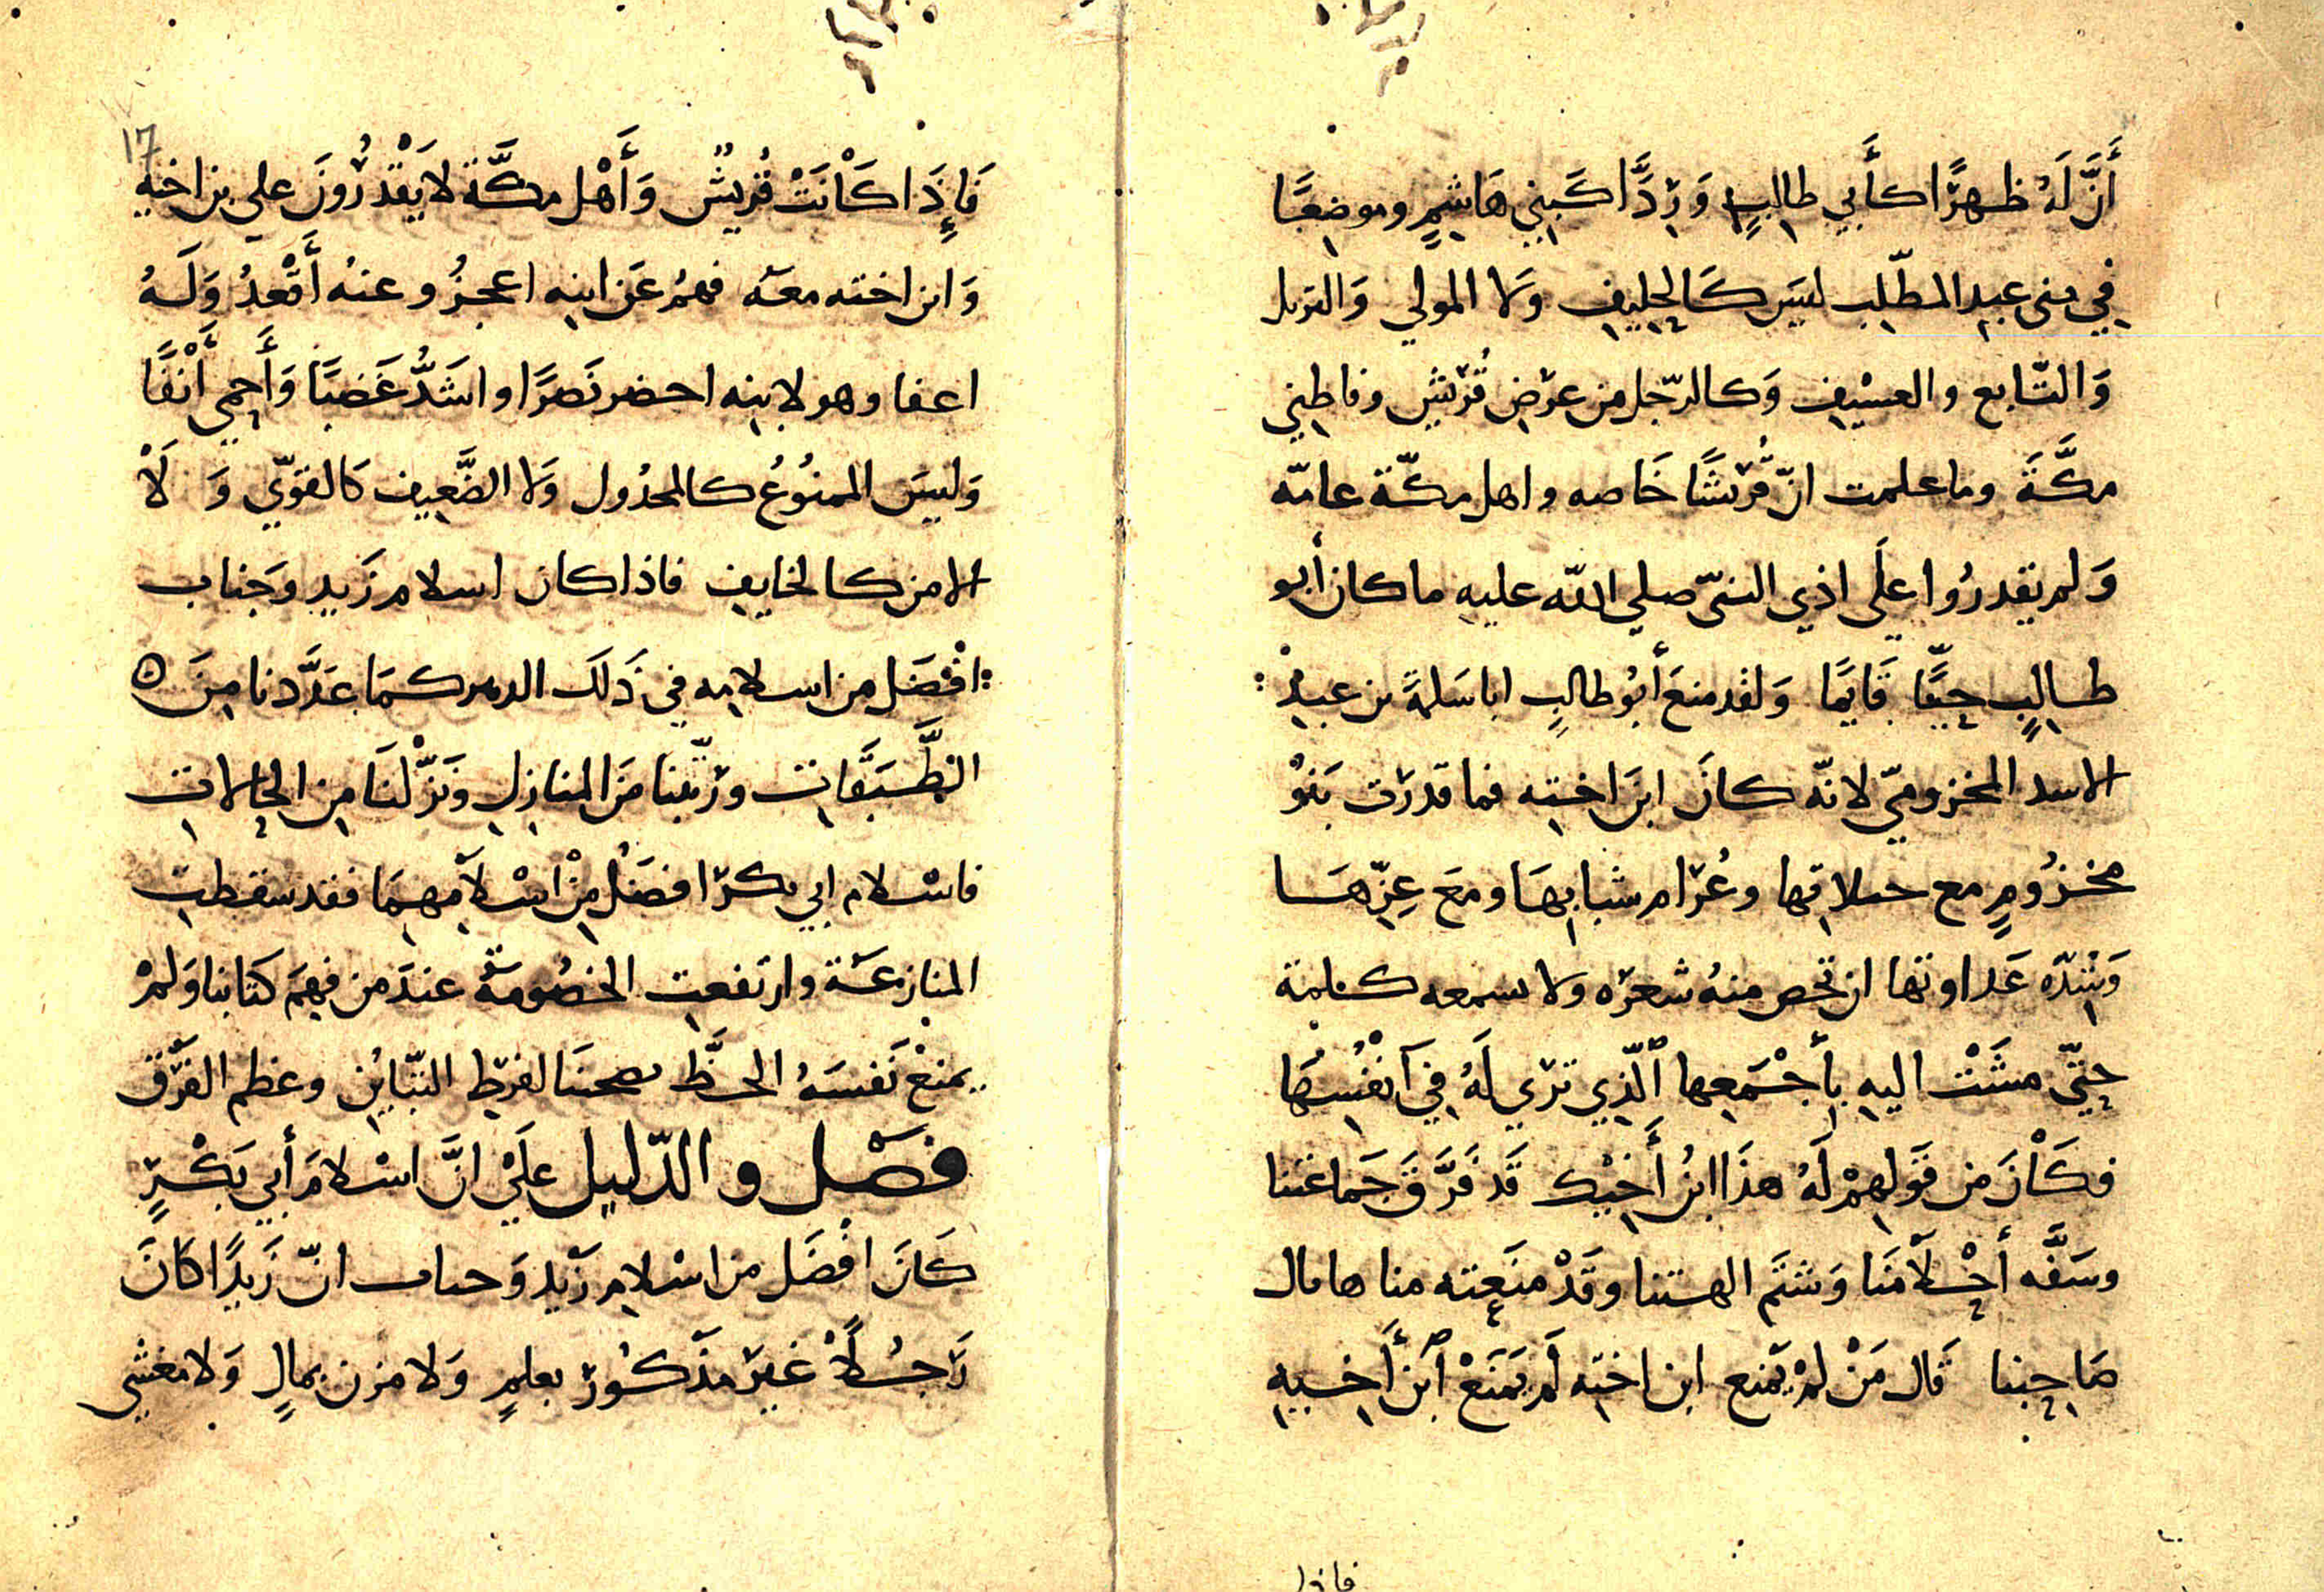 أَنَّ لَهُ ظهرًا كأَبي طالبٍ وَرِدًّا كَبني هَاشمٍ وموضعًا
في بني عبد المطّلب ليسَ كَالحليف ولا المولي وَالنزيل
وَالتّابع والعسْيف وَكالرّجل من عرْض قُريش وقاطني
مكَّةَ وما علمت انّ قُريشًا خَاصه واهل مكّة عامّه
وَلم يقدرُوا علَي اذي النبيّ صلي اللّه عليه ما كان أبو
طالبٍ حيًّا قَايمًا وَلقد منعَ أبُو طالبٍ ابا سَلمةَ بن عبدْ
الاسد المخزوميّ لانّه كانَ ابنَ اخته فما قدرَت بَنوْ
مخزُومٍ مع حلاقها وعُرَام شبابهَا ومعَ عِزّهَا
وَشدّه عَداوتها ان تحص منهُ شعرَه ولا سمعه كلمة
حتّي مشَتْ اليه بأَجْمَعها ٱلّذِي تَرَي لَهُ فِي آنْفُسهَا
فكَاْنَ من قَولهمْ لَهُ هذَا ابنُ أَخيْك قَد فَرَّقَ جَماعَتنا
وسَفَّه أحْلاَمنَا وَشتَمَ الهتنا وقَدْ منَعته منا ها مال
صَاحبنا قَال مَنْ لمْ يَمنع ابن اخته لَم يَمنَعْ ٱبنَ أَخيه
فاذا
17
فَإِذَا كَاْنَتْ قُريشٌ وَأَهْل مكَّة لا يَقْدرُوْنَ علي بن اخيه
وَابن اخته معَه فهمُ عَن ابنه اعجزُ وعنهُ أَقْعدُ وَلَهُ
اعفا وهو لابنه احضر نَصرًا واشَدُّ غَضبًا وَأَحمي أَنْفًا
وَليسَ الممنُوُعُ كالمحدُول وَلا الضَّعيف كَالقويّ وَ لَاْ
الامن كالخايف فاذا كان اسلام زَيد وَجناب
افْضَل من اسلامه في ذَلكَ الدهر كمَا عَدَّدنا منَ
الطَّبقَات ورَتّبنا مَن المنازلِ ونَزّْلنَا مِن الحالات
فاسْلام ابي بكرَ افضَلُ منْ اسْلاَمهمَا فقد سقطت
المنازعَة وارتفعت الخصُومَةُ عندَ من فهمَ كتَابنا وَلمْ
يمنعْ نَفسَهُ الحظَّ صحنَا لفرَط التّبايُن وعظم الفَرْق
فصَل والدّليل علَيْ انَّ اسْلامَ أبي بَكْرٍ
كَانَ افْضَل من اسْلامِ زَيْد وَحباب انّ زَيدًا كَانَ
رَجُلاً غيرَ مذْكُورٍ بعلمٍ وَلا مزن بمالٍ وَلا مغشي